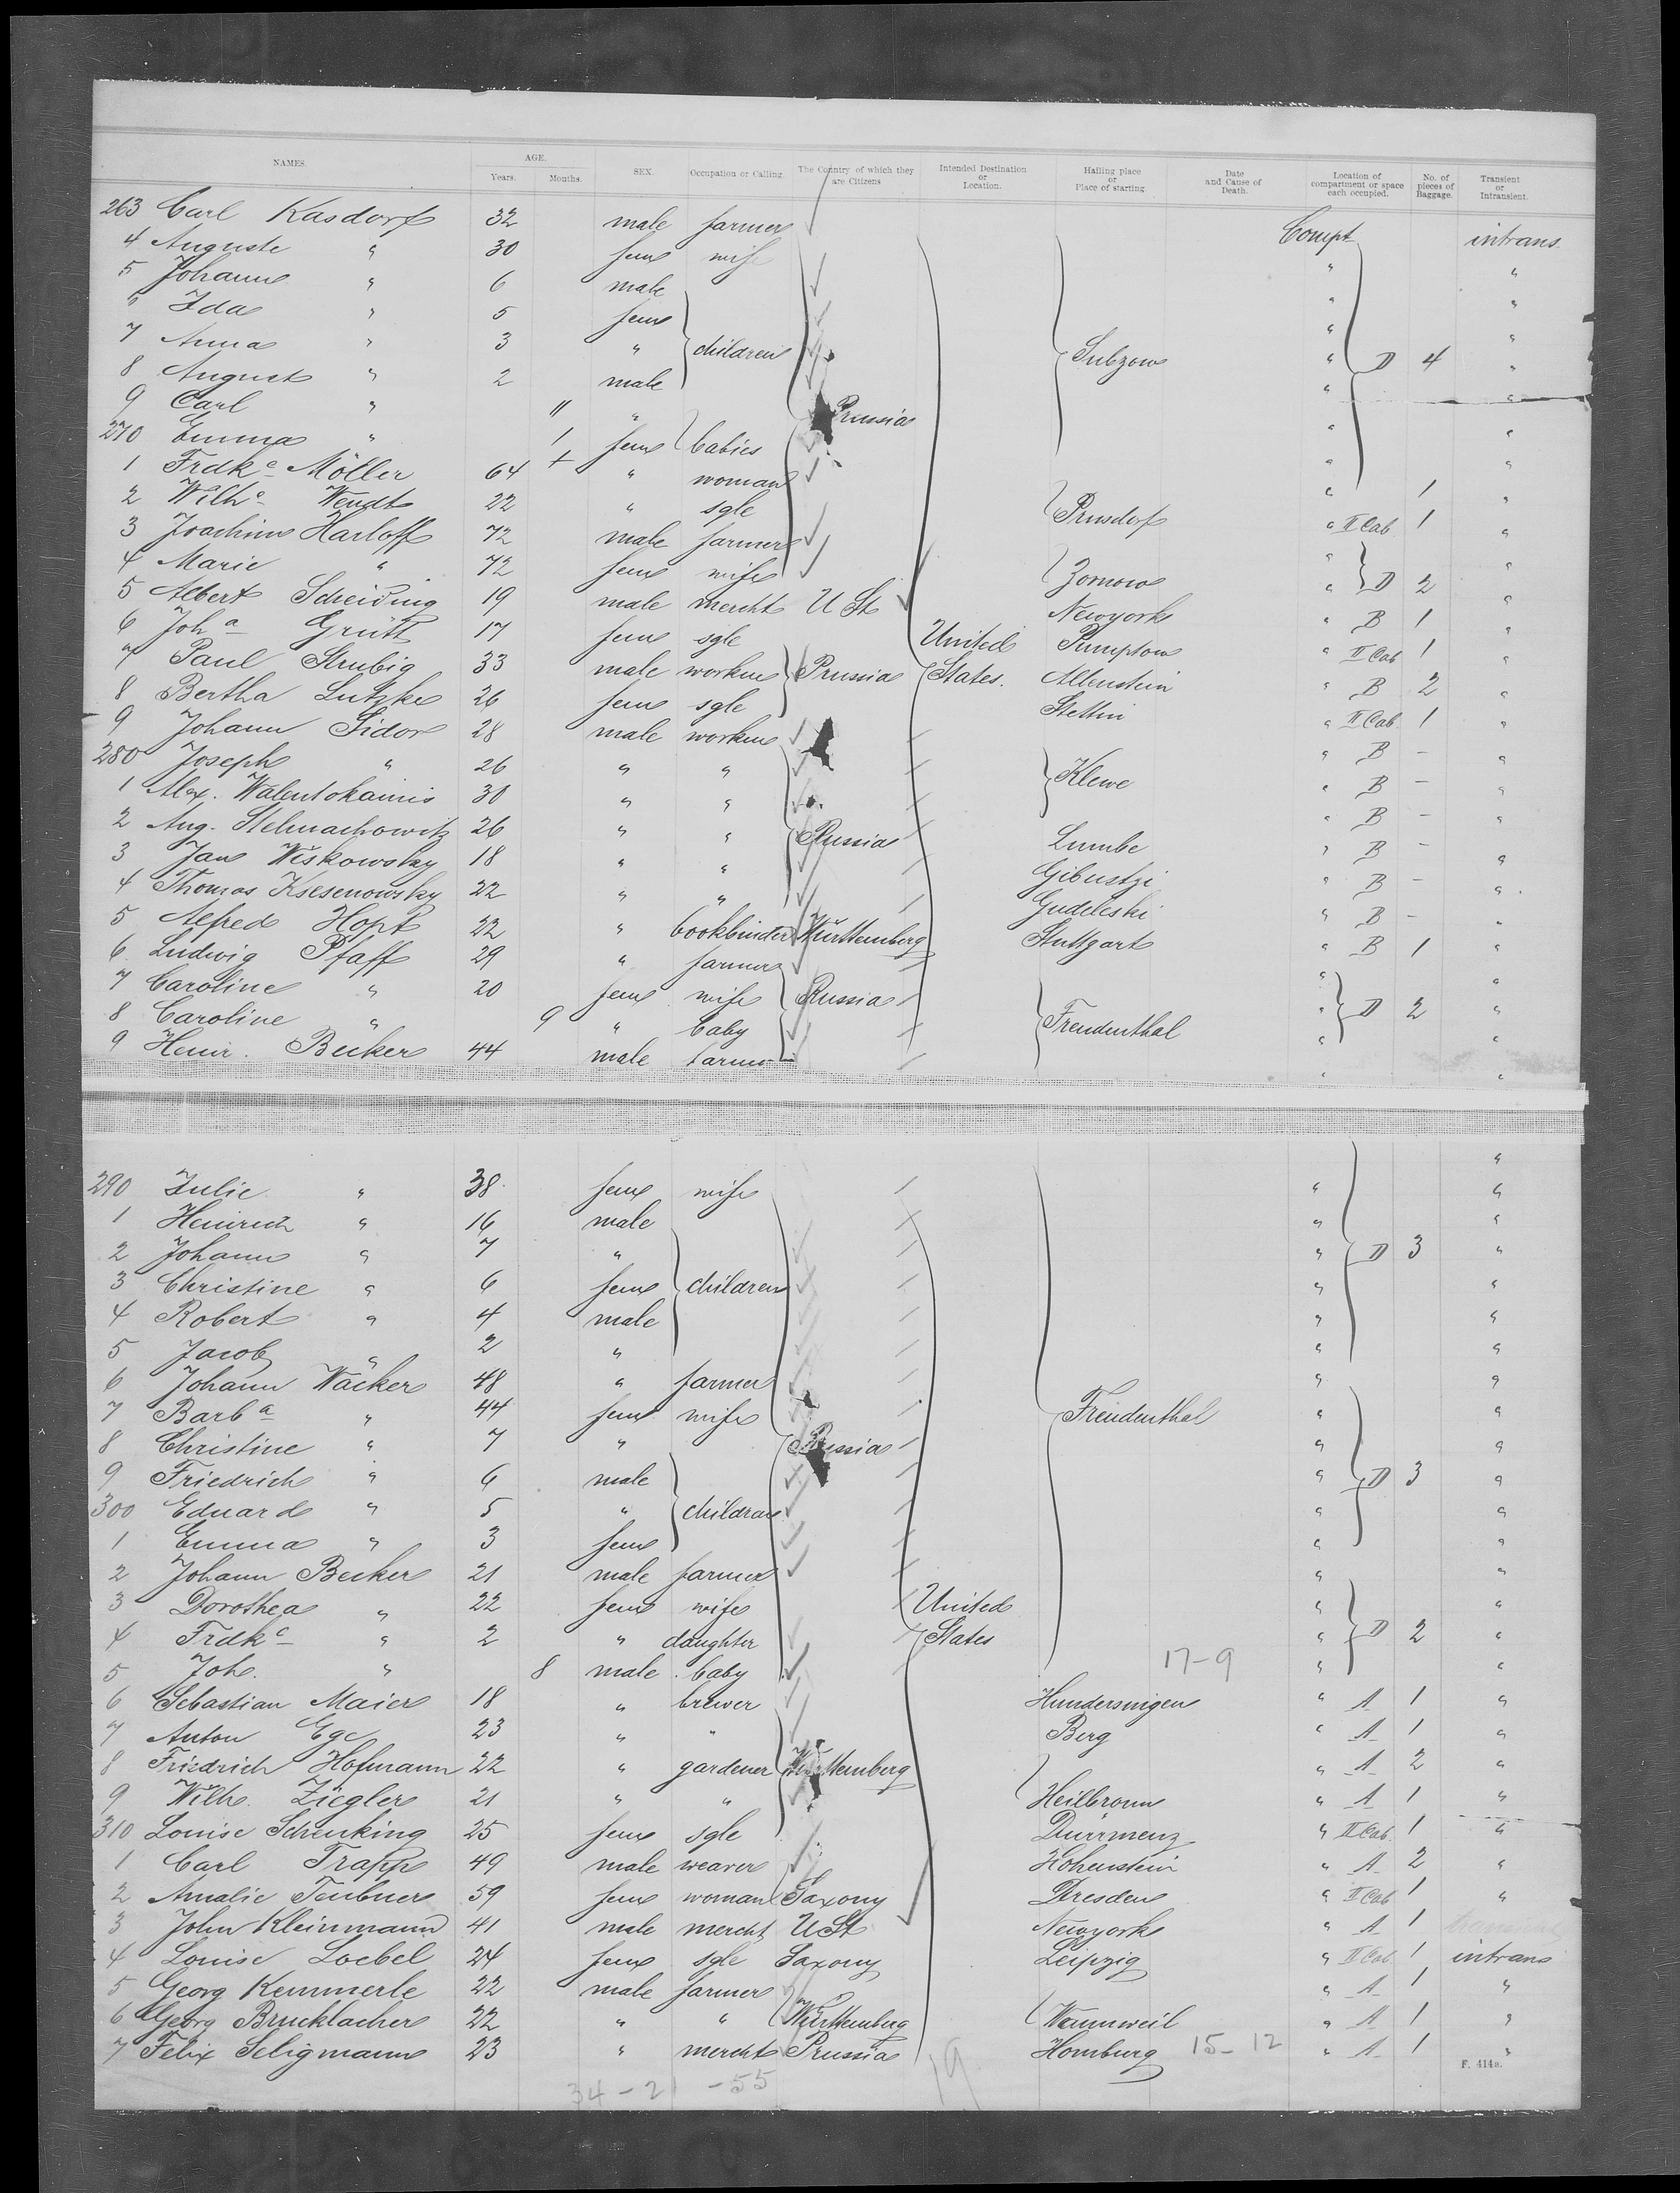 NAMES. AGE. Years. Months. SEX. Occupation or Calling. The Country of which they are Citizens Intended Destination or Location. Hailing place or Place of starting. Date and Cause of Death. Location of compartment or space each occupied. No. of pieces of Baggage. Transient or Intransient.
263 Carl Kasdorf 32 male farmer Compt intrans.
4 Auguste " 30 fem wife " "
5 Johann " 6 male " "
6 Ida " 5 fem " "
7 Anna " 3 " children Subzow " D 4 "
8 August " 2 male " "
9 Carl " 11 " Prussia " "
270 Emma " 1 fem babies " "
1 Frdke Möller 64 + " woman " 1 "
2 Wilhe Wendt 22 " sgle Prusdorf " II Cab 1 "
3 Joachim Harloff 72 male farmer " "
4 Marie " 72 fem wife Zornow " D 2 "
5 Albert Scheiding 19 male mercht U St Newyork " B 1 "
6 Joha Grütt 17 fem sgle United Pumptow " II Cab 1 "
7 Paul Strubig 33 male workm Prussia States. Allenstein " B 2 "
8 Bertha Lutzke 26 fem sgle Stettin " II Cab 1 "
9 Johann Sidor 28 male workm " B - "
280 Joseph " 26 " " Klewe " B - "
1 Alex. Walentokainis 30 " " " B - "
2 Aug. Stelmachowitz 26 " " Russia Lumbe " B - "
3 Jan Wiskowsky 18 " " Gibustzi " B - "
4 Thomas Ksesenowsky 22 " " Gudeleski " B - "
5 Alfred Hopt 22 " bookbinder Württemberg Stuttgart " B 1 "
6 Ludwig Pfaff 29 " farmer " "
7 Caroline " 20 fem wife Russia " D 2 "
8 Caroline " 9 " baby Freudenthal " "
9 Heinr. Becker 44 male farmer " "
290 Julie " 38 fem wife " "
1 Heinrich " 16 male " "
2 Johann " 7 " " D 3 "
3 Christine " 6 fem children " "
4 Robert " 4 male " "
5 Jacob " 2 " " "
6 Johann Wacker 48 " farmer " "
7 Barba " 44 fem wife Freudenthal " "
8 Christine " 7 " Russia " "
9 Friedrich " 6 male " D 3 "
300 Eduard " 5 " children " "
1 Emma " 3 fem " "
2 Johann Becker 21 male farmer " "
3 Dorothea " 22 fem wife United " "
4 Frdke " 2 " daughter States " D 2 "
5 Joh. " 8 male baby 17-9 " "
6 Sebastian Maier 18 " brewer Hundersingen " A 1 "
7 Anton Ege 23 " " Berg " A 1 "
8 Friedrich Hofmann 22 " gardener Württemberg " A 2 "
9 Wilh. Ziegler 21 " " Heilbronn " A 1 "
310 Louise Schenking 25 fem sgle Dürrmenz " II Cab. 1 "
1 Carl Trapp 49 male weaver Hohenstein " A 2 "
2 Amalie Teubner 59 fem woman Saxony Dresden " II Cab 1 "
3 John Kleinmann 41 male mercht U St Newyork " A 1
4 Louise Loebel 24 fem sgle Saxony Leipzig " II Cab 1 intrans
5 Georg Kemmerle 22 male farmer " A 1 "
6 Georg Brucklacher 22 " " Württemberg Wannweil " A 1 "
7 Felix Seligmann 23 " mercht Prussia Homburg 15-12 " A 1 "
F. 414a.
34-21 -55 19